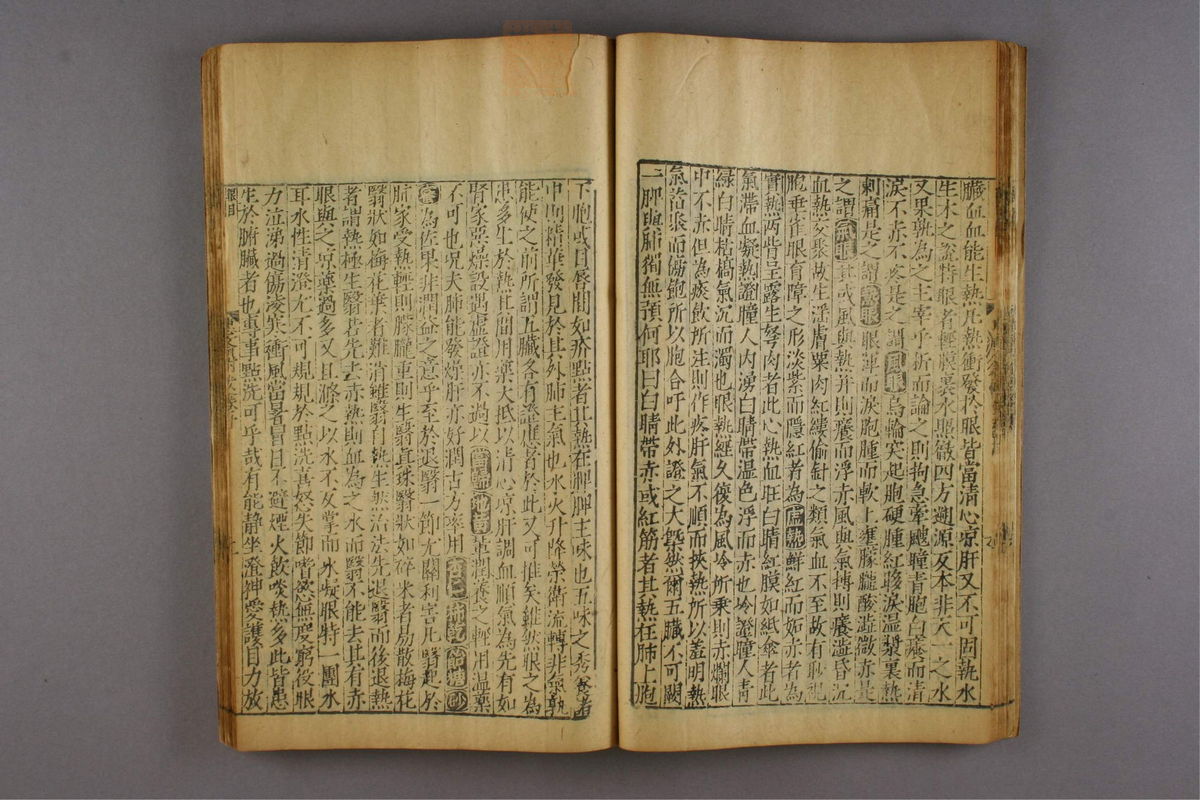 膽血血能生熱凡熱衝發於眼皆當清心凉肝又不可固執水
生木之說特眼者輕膜裹水照徹四方遡源反本非天一之水
又果孰為之主宰乎析而論之則拘急牽飕瞳青胞白癢而清
淚不赤不疼是之謂風眼烏輪突起胞硬腫紅眵淚濕漿裏熱
刺痛是之謂熱眼眼渾而淚胞腫而軟上壅朦朧酸澁微赤是
之謂氣眼其或風與熱并則癢而浮赤風與氣搏則癢澁昏沉
血熱交聚故生淫膚粟肉紅縷偷針之類氣血不至故有眇視
胞垂雀眼盲障之形淡紫而隱紅者為虛熱鮮紅而妬赤者為
實熱兩眥呈露生努肉者此心熱血旺白睛紅膜如紙傘者此
氣滯血凝熱證瞳人內湧白睛帶濕色浮而赤也冷證瞳人青
綠白睛枯槁氣沉而濁也眼熱經久復為風冷所乘則赤爛眼
中不赤但為痰飲所注則作疼肝氣不順而挾熱所以羞明熱
氣蓄聚而傷飽所以胞合吁此外證之大槩然爾五臟不可闕
一脾與肺獨無預何耶曰白睛帶赤或紅筋者其熱在肺上胞
下胞或目唇間如疥點者其熱在脾脾主味也五味之秀養者
中則精華發見於其外肺主氣也水火升降榮衛流轉非氣孰
能使之前所謂五臟各有證應者於此又可推矣雖然眼之為
患多生於熱其間用藥大抵以清心凉肝調血順氣為先有如
腎家惡燥設遇虛證亦不過以當歸地黃輩潤養之輕用溫藥
不可也况夫肺能發燥肝亦好潤古方率用杏仁柿乾飴糖砂
蜜為佐果非潤益之意乎至於退翳一節尤關利害凡翳起於
肺家受熱輕則朦朧重則生翳真珠翳狀如碎米者易散梅花
翳狀如梅花葉者難消雖翳自熱生然治法先退翳而後退熱
者謂熱極生翳若先去赤熱則血為之水而翳不能去其有赤
眼與之凉藥過多又且滌之以水不反掌而水凝眼特一團水
耳水性清澄尤不可規規於點洗喜怒失節嗜慾無度窮役眼
力泣涕過傷凌寒衝風當暑冒日不避煙火飲啖熱多此皆患
生於腑臟者也專事點洗可乎哉有能静坐澄神愛護目力放
眼目